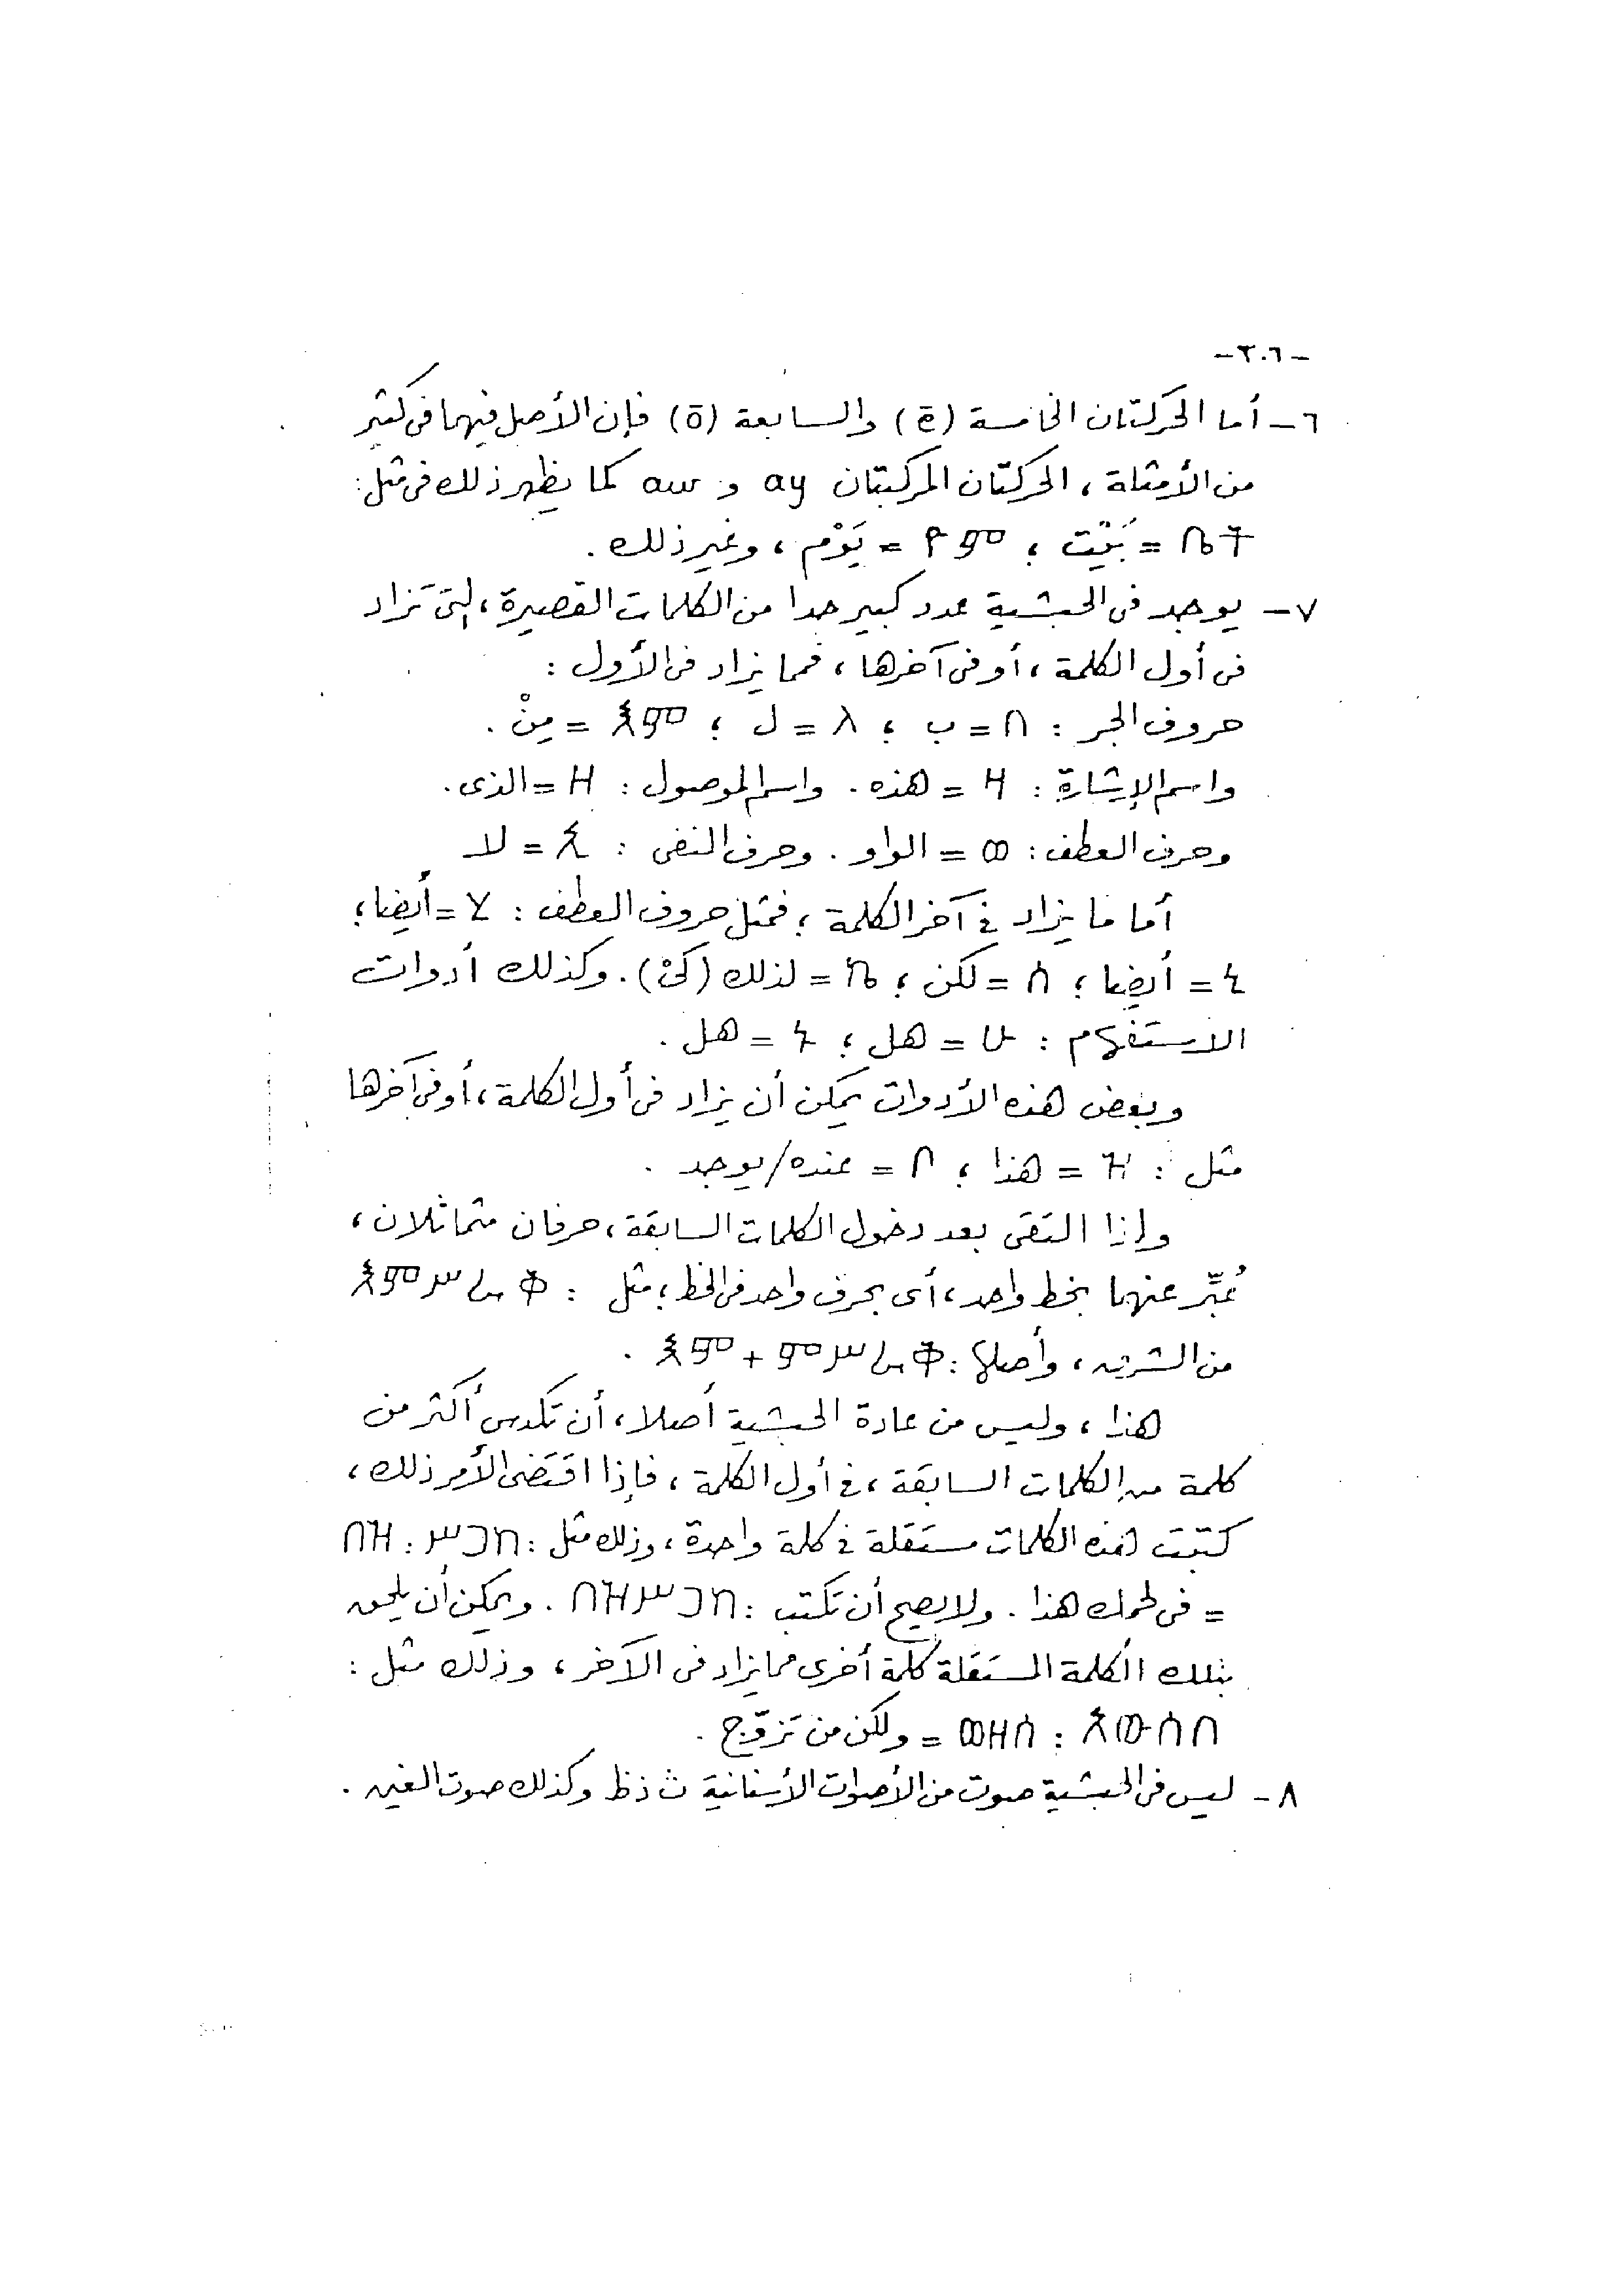 -٢٠٦-
٦- أما الحركتان الخامسة (ē) والسابعة (ō) فإن الأصل فيهما فى كثير
من الأمثلة ، الحركتان المركبتان ay و aw كما يظهر ذلك فى مثل :
ቤት = بَيْت ؛ ዮም = يَوْم ، وغير ذلك .
٧- يوجد فى الحبشية عدد كبير جدا من الكلمات القصيرة ، التى تزاد
فى أول الكلمة ، أو فى آخرها ، فمما يزاد فى الأول :
حروف الجر : በ = ب ؛ ለ = ل ؛ እም = مِنْ .
واسم الإشارة : ዛ = هذه . واسم الموصول : ዘ = الذى .
وحرف العطف : ወ = الواو . وحرف النفى : ኢ = لا
أما ما يزاد فى آخر الكلمة ؛ فمثل حروف العطف : ሂ = أيضا ؛
ኒ = أيضا ؛ ሰ = لكن ؛ ኬ = لذلك (كىْ) . وكذلك أدوات
الاستفهام : ሁ = هل ؛ ኑ = هل .
وبعض هذه الأدوات يمكن أن يزاد فى أول الكلمة ، أو فى آخرها
مثل : ዝ = هذا ؛ ቦ = عنده/يوجد .
وإذا التقى بعد دخول الكلمات السابقة ، حرفان متماثلان ،
عُبِّر عنهما بخط واحد ، أى بحرف واحد فى الخط ؛ مثل : እምሥራቅ
من الشرق ، وأصلها : እም + ምሥራቅ .
هذا ، وليس من عادة الحبشية أصلا ، أن تكدس أكثر من
كلمة من الكلمات السابقة ، فى أول الكلمة ، فإذا اقتضى الأمر ذلك ،
كتبت هذه الكلمات مستقلة فى كلمة واحدة ، وذلك مثل : በዝ : ሥጋከ
= فى لحمك هذا . ولا يصح أن تكتب : በዝሥጋከ . ويمكن أن يلحق
بتلك الكلمة المستقلة كلمة أخرى مما يزاد فى الآخر ، وذلك مثل :
ወዘሰ : አውሰበ = ولكن من تزوّج .
٨- ليس فى الحبشية صوت من الأصوات الأسنانية ث ذ ظ وكذلك صوت الغين .